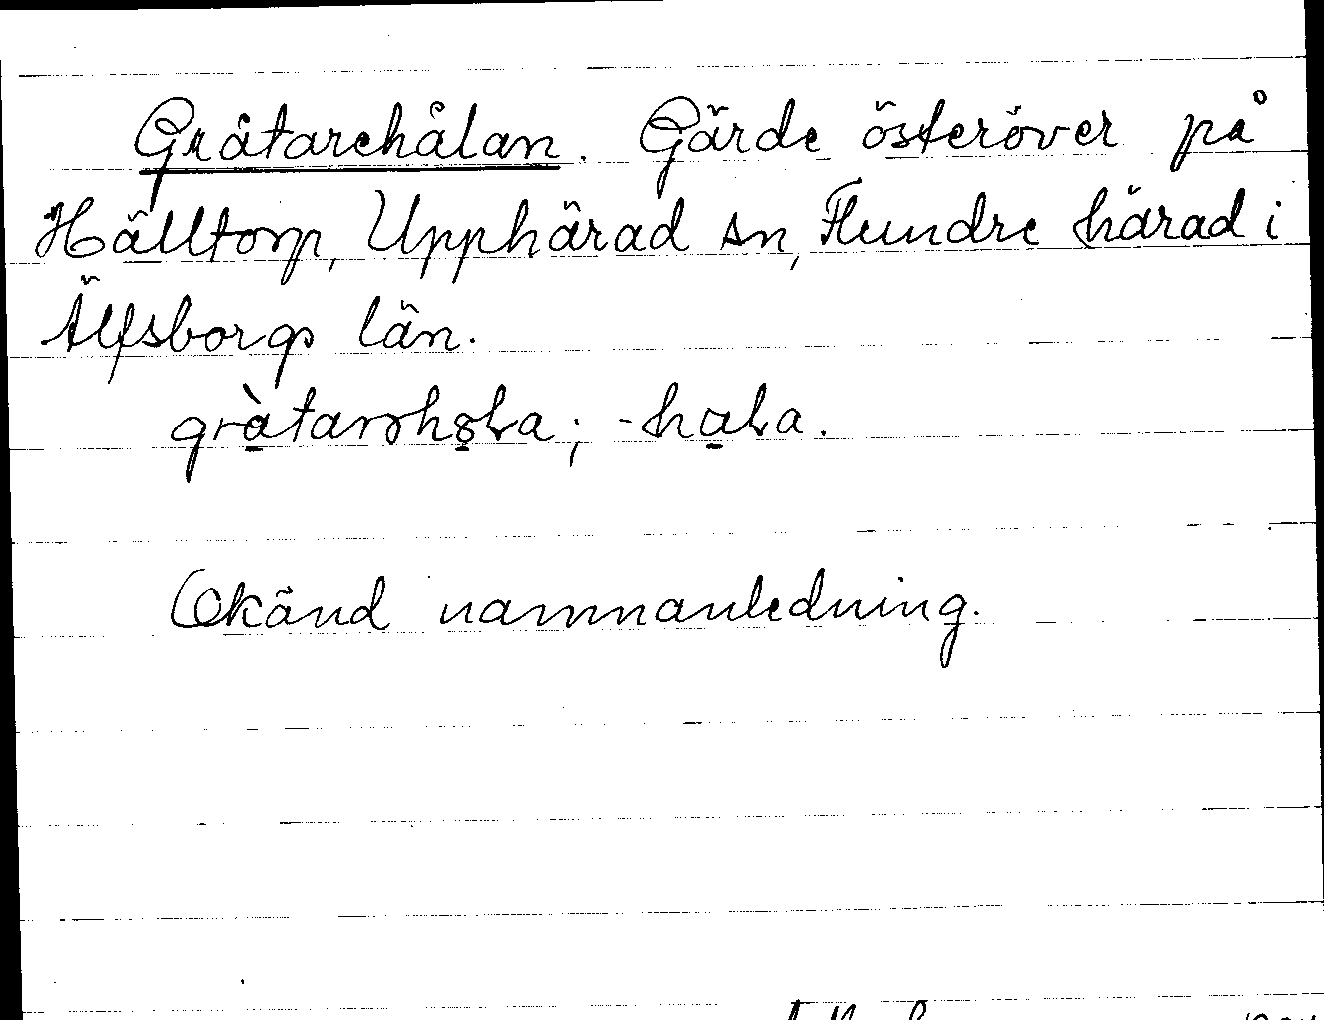 Gråtarehålan. Gärde österöver på
Hälltorp, Upphärad sn, Flundre härad i
Älfsborgs län.
Okänd namnanledning.